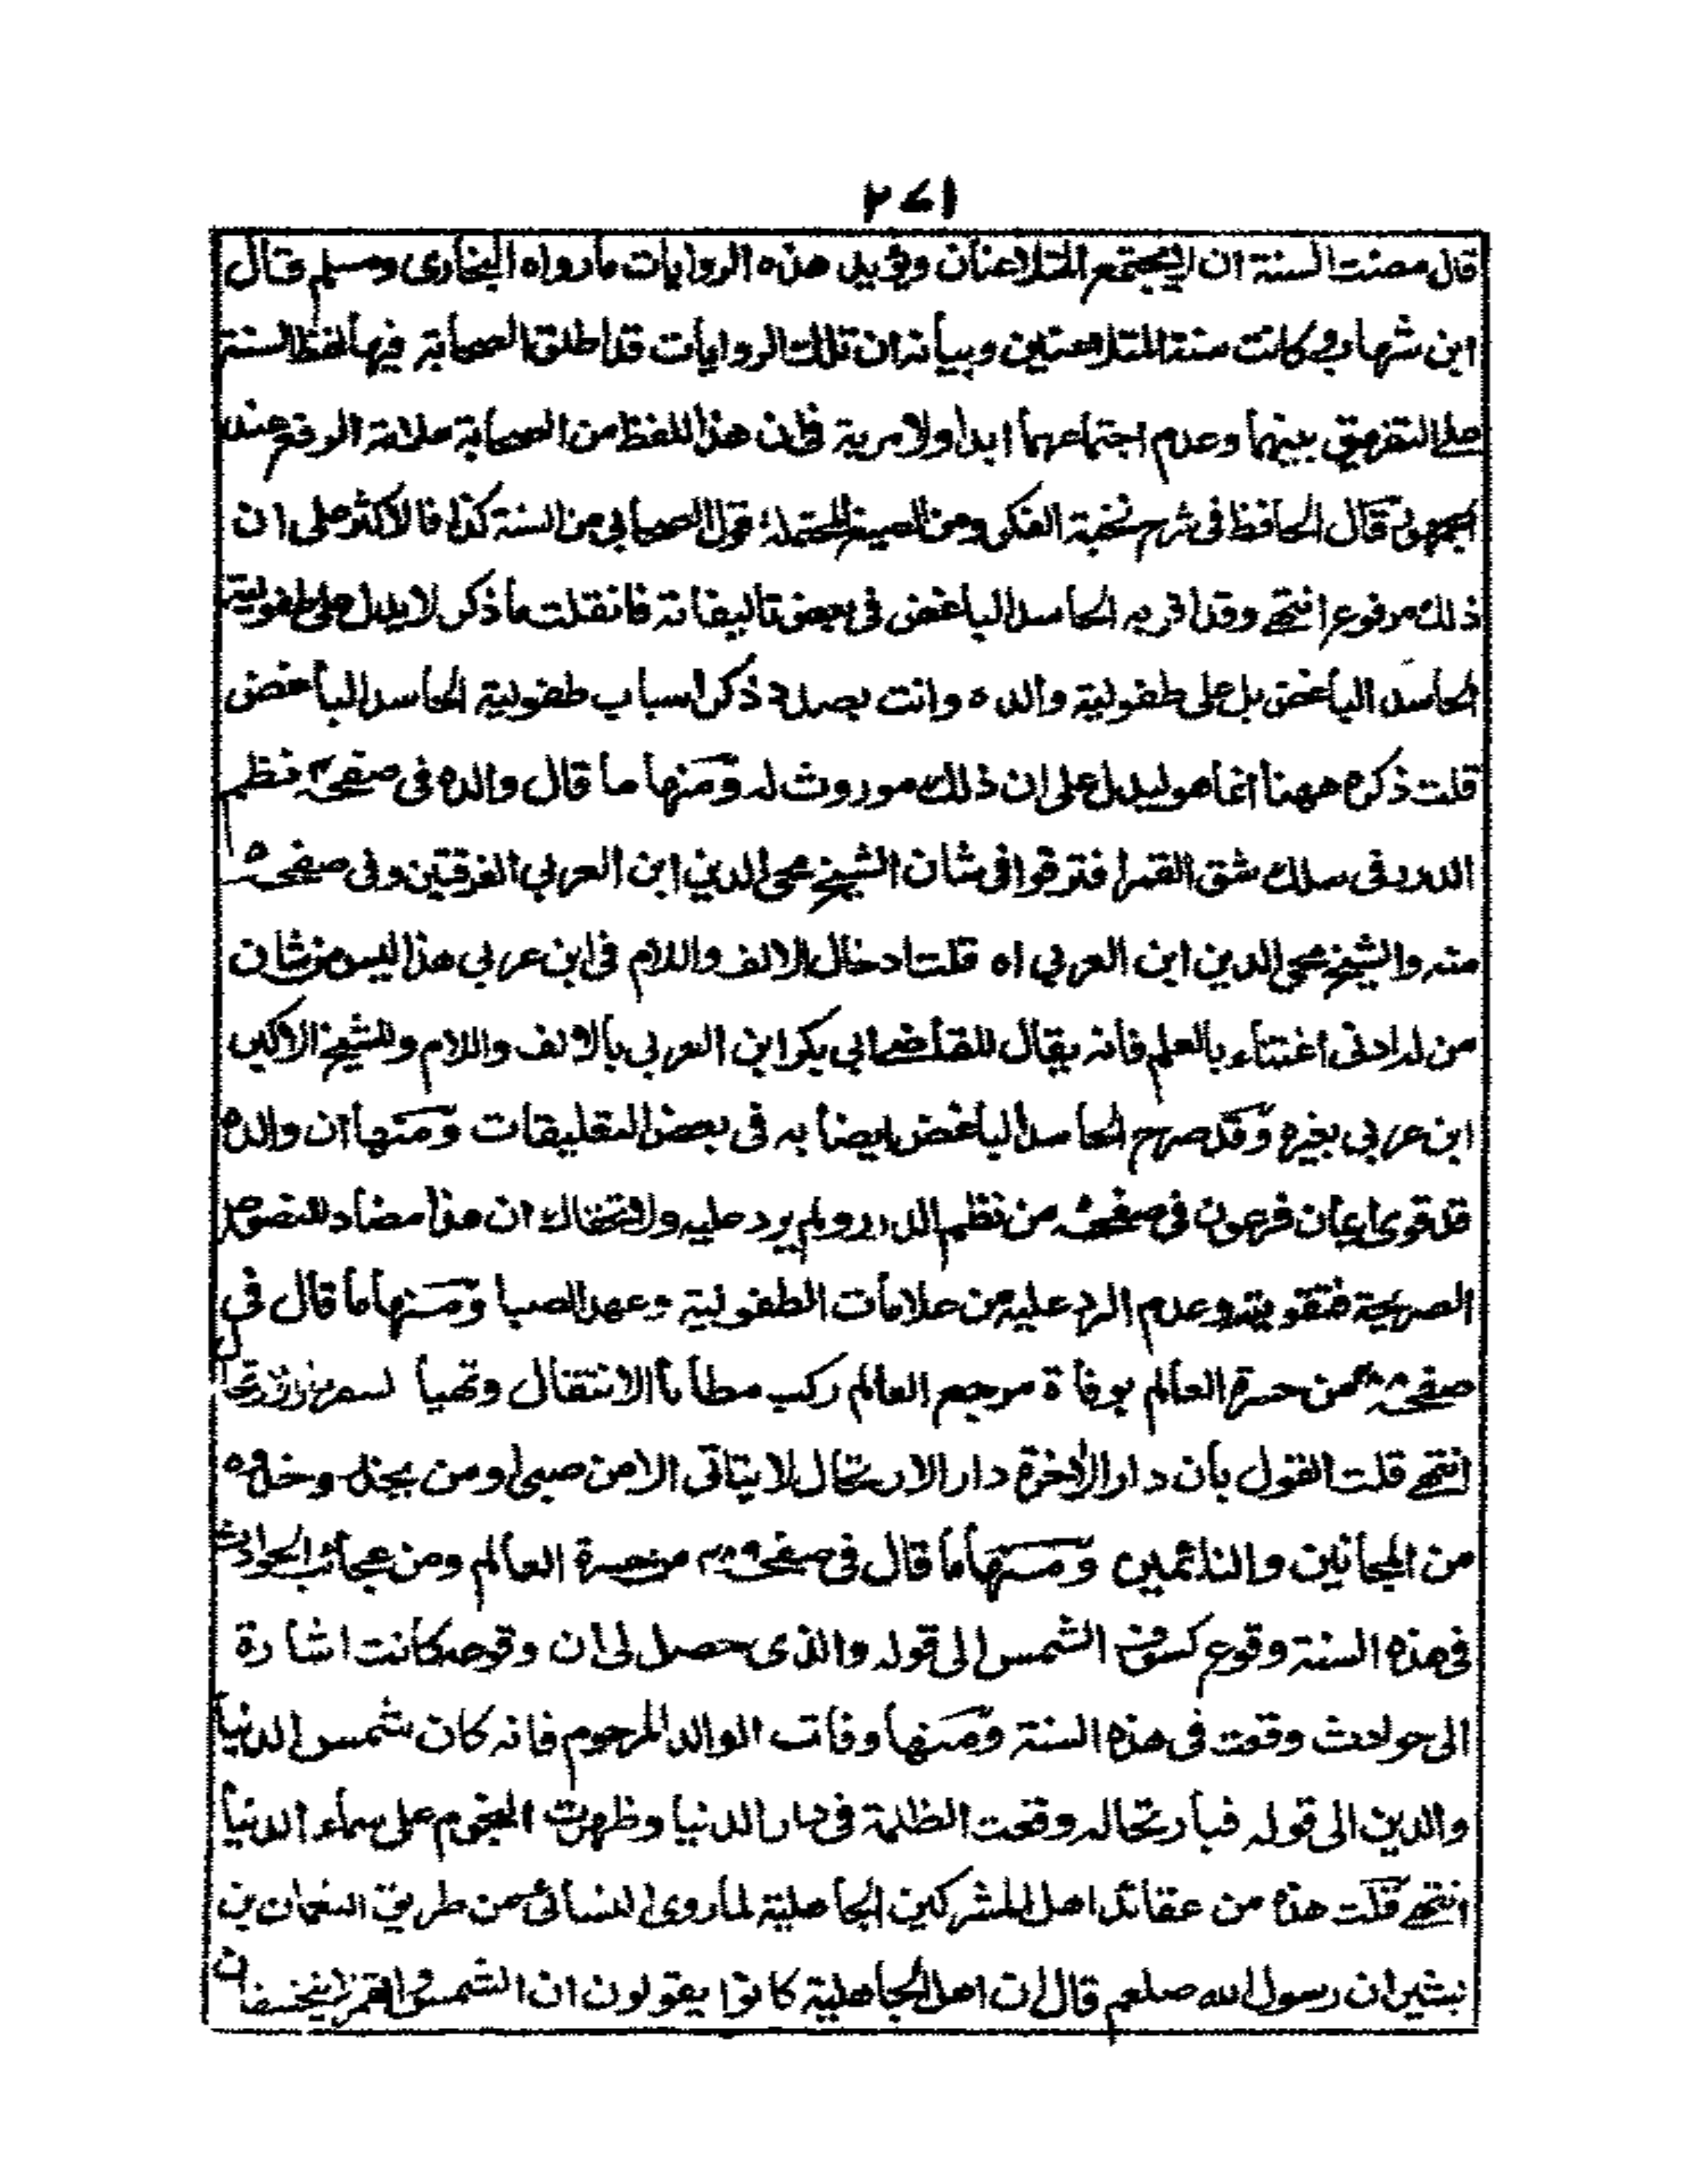 ٢٧١
قال مضت السنة ان لا يجتمع المتلاعنان ويؤيد هذه الروايات ما رواه البخارى ومسلم قال
ابن شهاب وكانت سنة المتلاعنين وبيانه ان تلك الروايات قد اطلق الصحابة فيها لفظ السنة
على التفريق بينهما وعدم اجتماعهما ابدا ولا مرية فان هذا اللفظ من الصحابة علامة الرفع عند
الجمهور قال الحافظ فى شرح نخبة الفكر ومن الصيغ المحتملة قول الصحابي من السنة كذا فالاكثر على ان
ذلك مرفوع انتهى وقد اقر به الحاسد الباغض فى بعض تاليفاته فان قلت ما ذكر لا يدل على طفولية
الحاسد الباغض بل على طفولية والده وانت بصدد ذكر اسباب طفولية الحاسد الباغض
قلت ذكره ههنا انما هو ليدل على ان ذلك موروث له ومنها ما قال والده فى صفحة نظم
الدرر فى سلك شق القمر افترقوا فى شان الشيخ محى الدين ابن العربي الفرقتين وفى صفحة
منه والشيخ محى الدين ابن العربي اه قلت ادخال الالف واللام فى ابن عربي هذا ليس من شان
من له ادنى اغتناء بالعلم فانه يقال للقاضى ابي بكر ابن العربي بالالف واللام وللشيخ الاكبر
ابن عربي بغيره وقد صرح الحاسد الباغض ايضا به فى بعض التعليقات ومنها ان والده
قد قوى ايمان فرعون فى صفحة من نظم الدرر ولم يرد عليه ولا يخفاك ان هذا مضاد للنصوص
الصريحة فتقويته وعدم الرد عليه من علامات الطفولية وعهد الصبا ومنها ما قال فى
صفحة من حسرة العالم بوفاة مرجع العالم ركب مطايا الانتقال وتهيأ لسفر دار الارتحال
انتهى قلت القول بان دار الآخرة دار الارتحال لا يتاتى الا من صبى او من يحذو حذوه
من المجانين والنائمين ومنها ما قال فى صفحة من حسرة العالم ومن عجائب الحوادث
فى هذه السنة وقوع كسوف الشمس الى قوله والذى حصل لى ان وقوعه كانت اشارة
الى حوادث وقعت فى هذه السنة ومنها وفات الوالد المرحوم فانه كان شمس الدنيا
والدين الى قوله فبارتحاله وقعت الظلمة فى دار الدنيا وظهرت النجوم على سماء الدنيا
انتهى قلت هذه من عقائد اهل المشركين الجاهلية لما روى النسائى من طريق النعمان بن
بشير ان رسول الله صلعم قال ان اهل الجاهلية كانوا يقولون ان الشمس والقمر لا ينخسفان